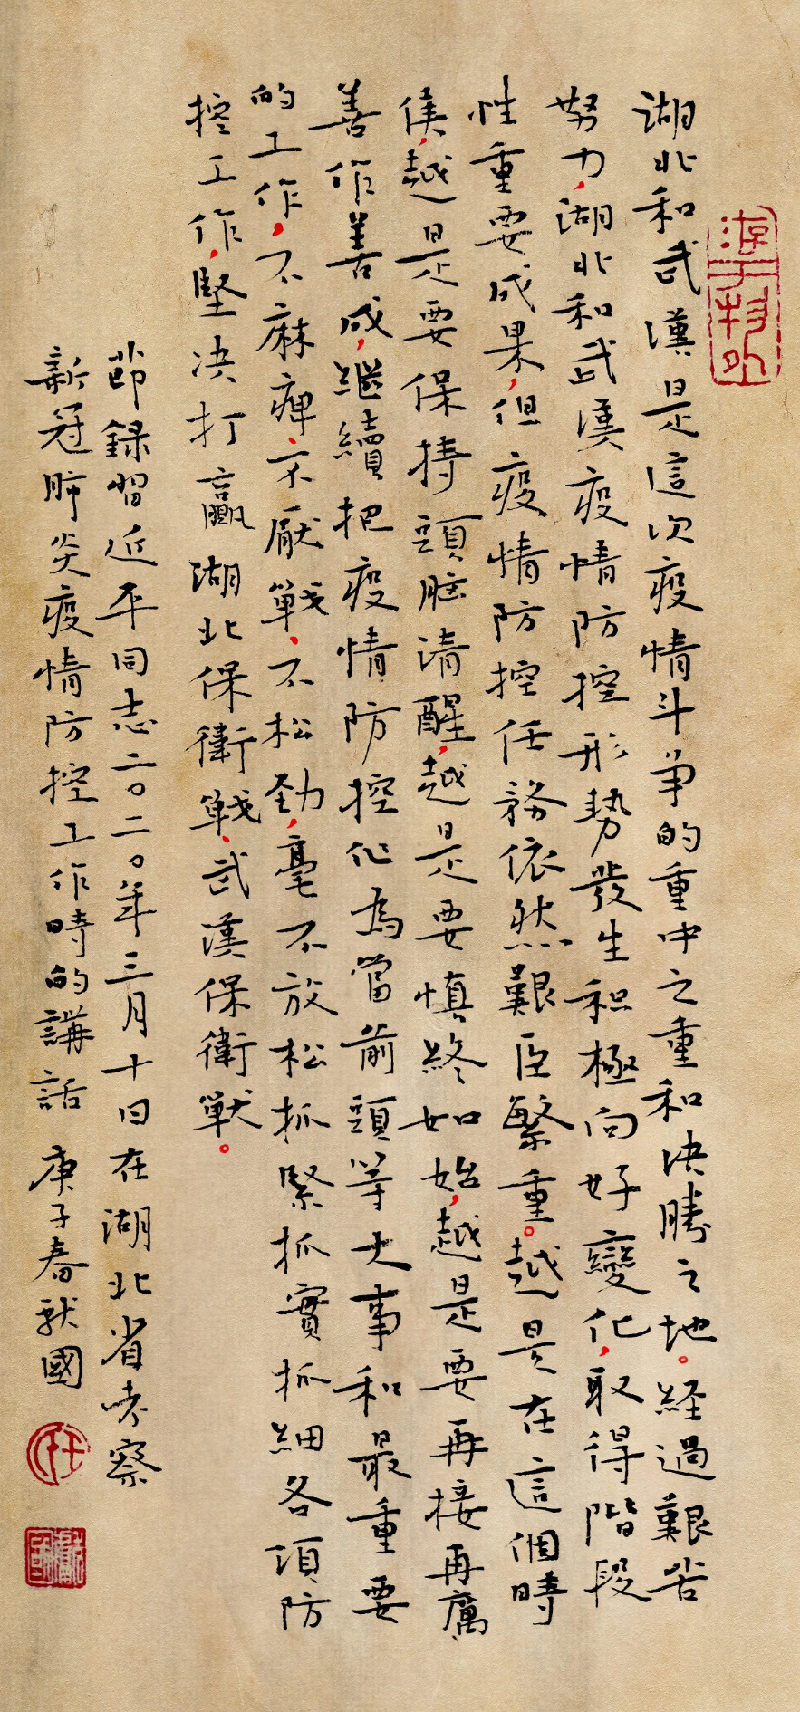 湖北和武漢是這次疫情斗争的重中之重和决勝之地。経過艱苦
努力,湖北和武漢疫情防控形勢發生积極向好變化,取得階段
性重要成果,但疫情防控任務依然艱臣繁重。越是在這個時
候,越是要保持頭脑清醒,越是要慎終如始,越是要再接再厲
善作善成,继續把疫情防控作為當前頭等大事和最重要
的工作,不麻痺、不厭戰、不松劲,毫不放松抓緊抓實抓细各項防
控工作,堅决打贏湖北保衛戰、武漢保衛戰。
節録習近平同志二〇二〇年三月十日在湖北省考察
新冠肺炎疫情防控工作時的講話 庚子春獻國